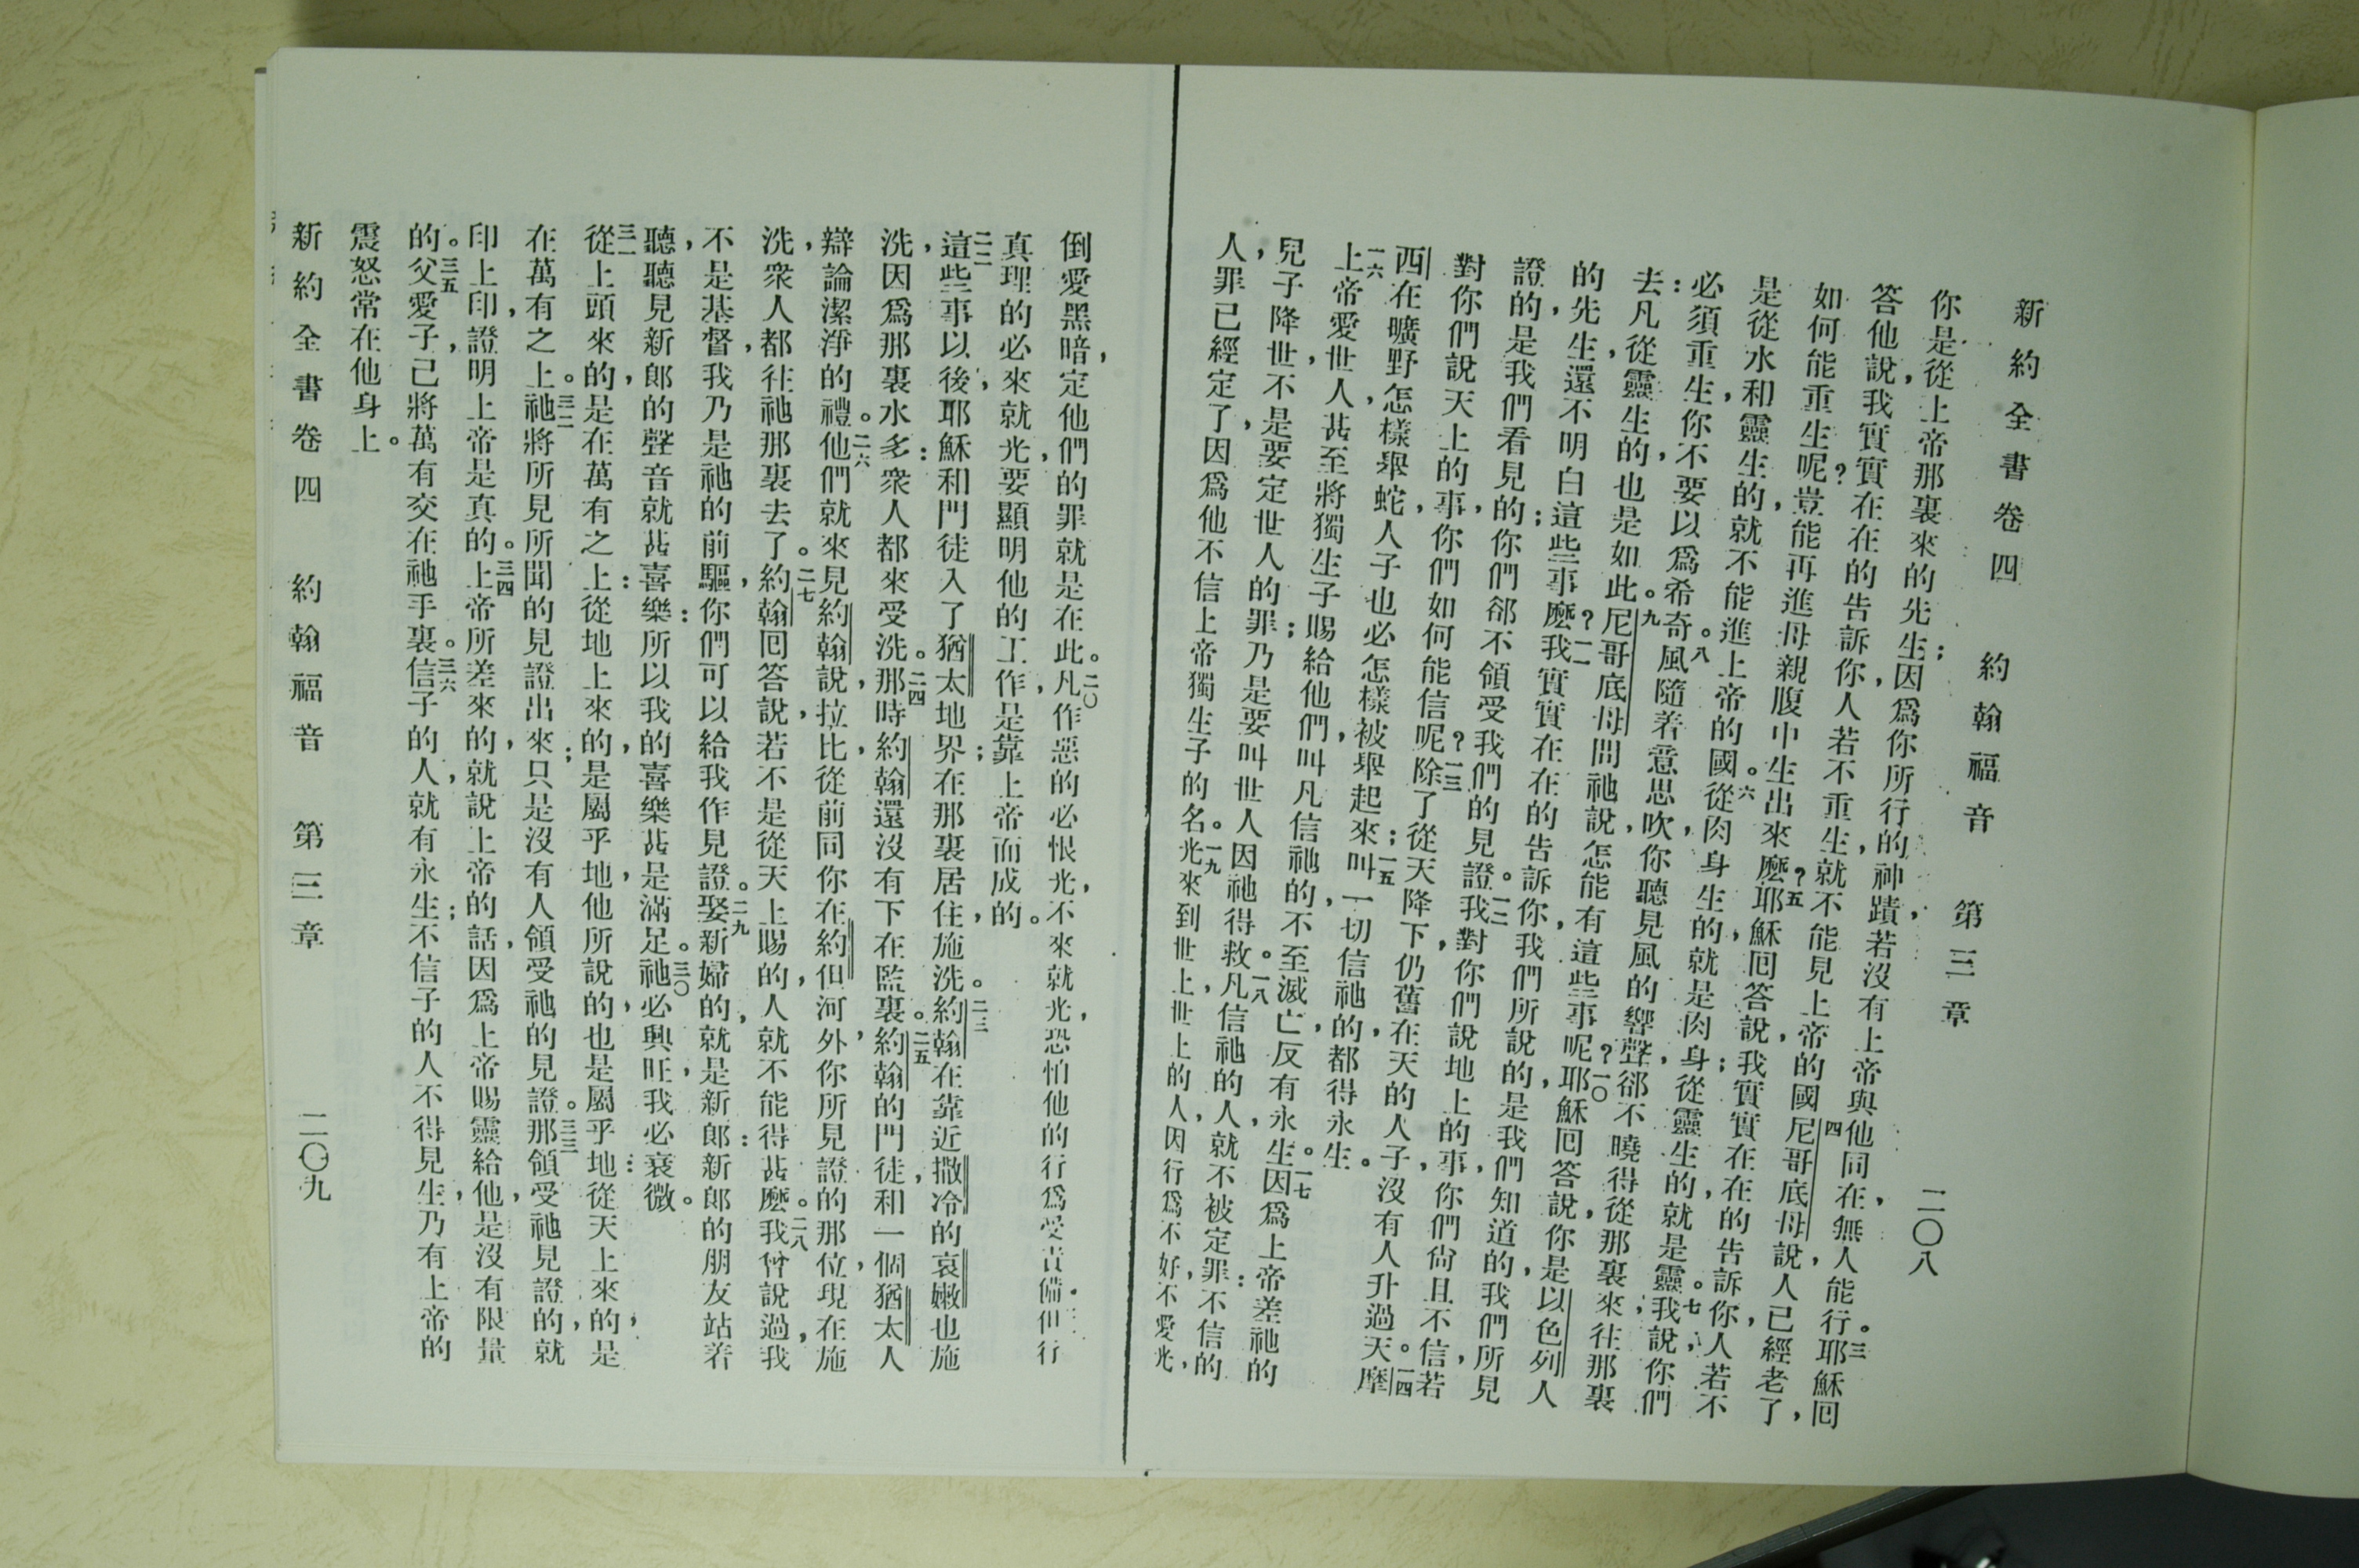 新約全書卷四 約翰福音 第三章 二〇八
你是從上帝那裏來的先生；因爲你所行的神蹟，若沒有上帝與他同在，無人能行。三耶穌囘
答他說，我實實在在的告訴你，人若不重生，就不能見上帝的國。四尼哥底母說，人已經老了，
如何能重生呢？豈能再進母親腹中生出來麼？五耶穌囘答說，我實實在在的告訴你，人若不
是從水和靈生的，就不能進上帝的國。六從肉身生的，就是肉身；從靈生的，就是靈。七我說，你們
必須重生，你不要以爲希奇。八風隨着意思吹，你聽見風的響聲，郤不曉得從那裏來，往那裏
去：凡從靈生的，也是如此。九尼哥底母問祂說，怎能有這些事呢？一〇耶穌囘答說，你是以色列人
的先生，還不明白這些事麼？一一我實實在在的告訴你，我們所說的，是我們知道的，我們所見
證的，是我們看見的；你們郤不領受我們的見證。一二我對你們說地上的事，你們尙且不信，若
對你們說天上的事，你們如何能信呢？一三除了從天降下仍舊在天的人子，沒有人升過天。一四摩
西在曠野怎樣舉蛇，人子也必怎樣被舉起來；一五叫一切信祂的，都得永生。
一六上帝愛世人，甚至將獨生子賜給他們，叫凡信祂的，不至滅亡，反有永生。一七因爲上帝差祂的
兒子降世，不是要定世人的罪；乃是要叫世人因祂得救。一八凡信祂的人，就不被定罪：不信的
人，罪已經定了，因爲他不信上帝獨生子的名。一九光來到世上，世上的人，因行爲不好，不愛光，
倒愛黑暗，定他們的罪，就是在此。二〇凡作惡的必恨光，不來就光，恐怕他的行爲受責備。但行
真理的必來就光，要顯明他的工作，是靠上帝而成的。
二二這些事以後，耶穌和門徒入了猶太地界；在那裏居住，施洗。二三約翰在靠近撒冷的哀嫩也施
洗，因爲那裏水多：衆人都來受洗。二四那時，約翰還沒有下在監裏。二五約翰的門徒，和一個猶太人
辯論潔淨的禮。二六他們就來見約翰說，拉比，從前同你在約但河外，你所見證的那位，現在施
洗，衆人都往祂那裏去了。二七約翰囘答說，若不是從天上賜的，人就不能得甚麼。二八我曾說過，我
不是基督，我乃是祂的前驅，你們可以給我作見證。二九娶新婦的，就是新郞：新郞的朋友站着
聽，聽見新郞的聲音就甚喜樂：所以我的喜樂甚是滿足。三〇祂必興旺，我必衰微。
三一從上頭來的，是在萬有之上：從地上來的，是屬乎地，他所說的，也是屬乎地：從天上來的，是
在萬有之上。三二祂將所見所聞的見證出來；只是沒有人領受祂的見證。三三那領受祂見證的，就
印上印，證明上帝是真的。三四上帝所差來的，就說上帝的話，因爲上帝賜靈給他，是沒有限量
的。三五父愛子，已將萬有交在祂手裏。三六信子的人，就有永生；不信子的人不得見生，乃有上帝的
震怒常在他身上。
新約全書卷四 約翰福音 第三章 二〇九